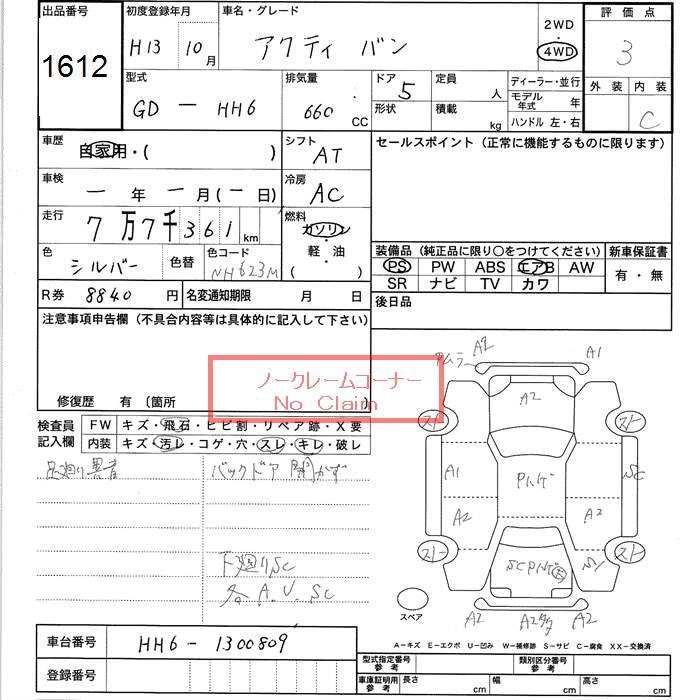 出品番号 初度登録年月 車名・グレード 2WD 評価点
1612 H13 10月 アクティ バン 4WD 3
型式 排気量 ドア 定員 ディーラー・並行 外装 内装
GD - HH6 660 CC 5 人 モデル年式 年 C
形状 積載 kg ハンドル 左・右
車歴 自家用・( ) シフト AT セールスポイント(正常に機能するものに限ります)
車検 一 年 一 月(一 日) 冷房 AC
走行 7万7千361 km 燃料 ガソリン
軽・油
( )
色 シルバー 色替 色コード NH623M
装備品(純正品に限り〇をつけてください) 新車保証書
PS PW ABS エアB AW 有・無
SR ナビ TV カワ
R券 8840 円 名変通知期限 月 日 後日品
注意事項申告欄(不具合内容等は具体的に記入して下さい)
ノークレームコーナー
No Claim
修復歴 有 (箇所
検査員記入欄 FW キズ・飛石・ヒビ割・リペア跡・X要
内装 キズ・汚レ・コゲ・穴・スレ・キレ・破レ
バックドア 開かず
下廻りSC
各 A.U.SC
A2 A1
A2
スト スト
A1 SC
A2 A2
スト スト
S1
A2 A2 A2
スペア
A-キズ E-エクボ U-凹み W-補修跡 S-サビ C-腐食 XX-交換済
車台番号 HH6-1300809
登録番号
型式指定番号 参考 類別区分番号 参考
車庫証明用 参考 長さ cm 幅 cm 高さ cm